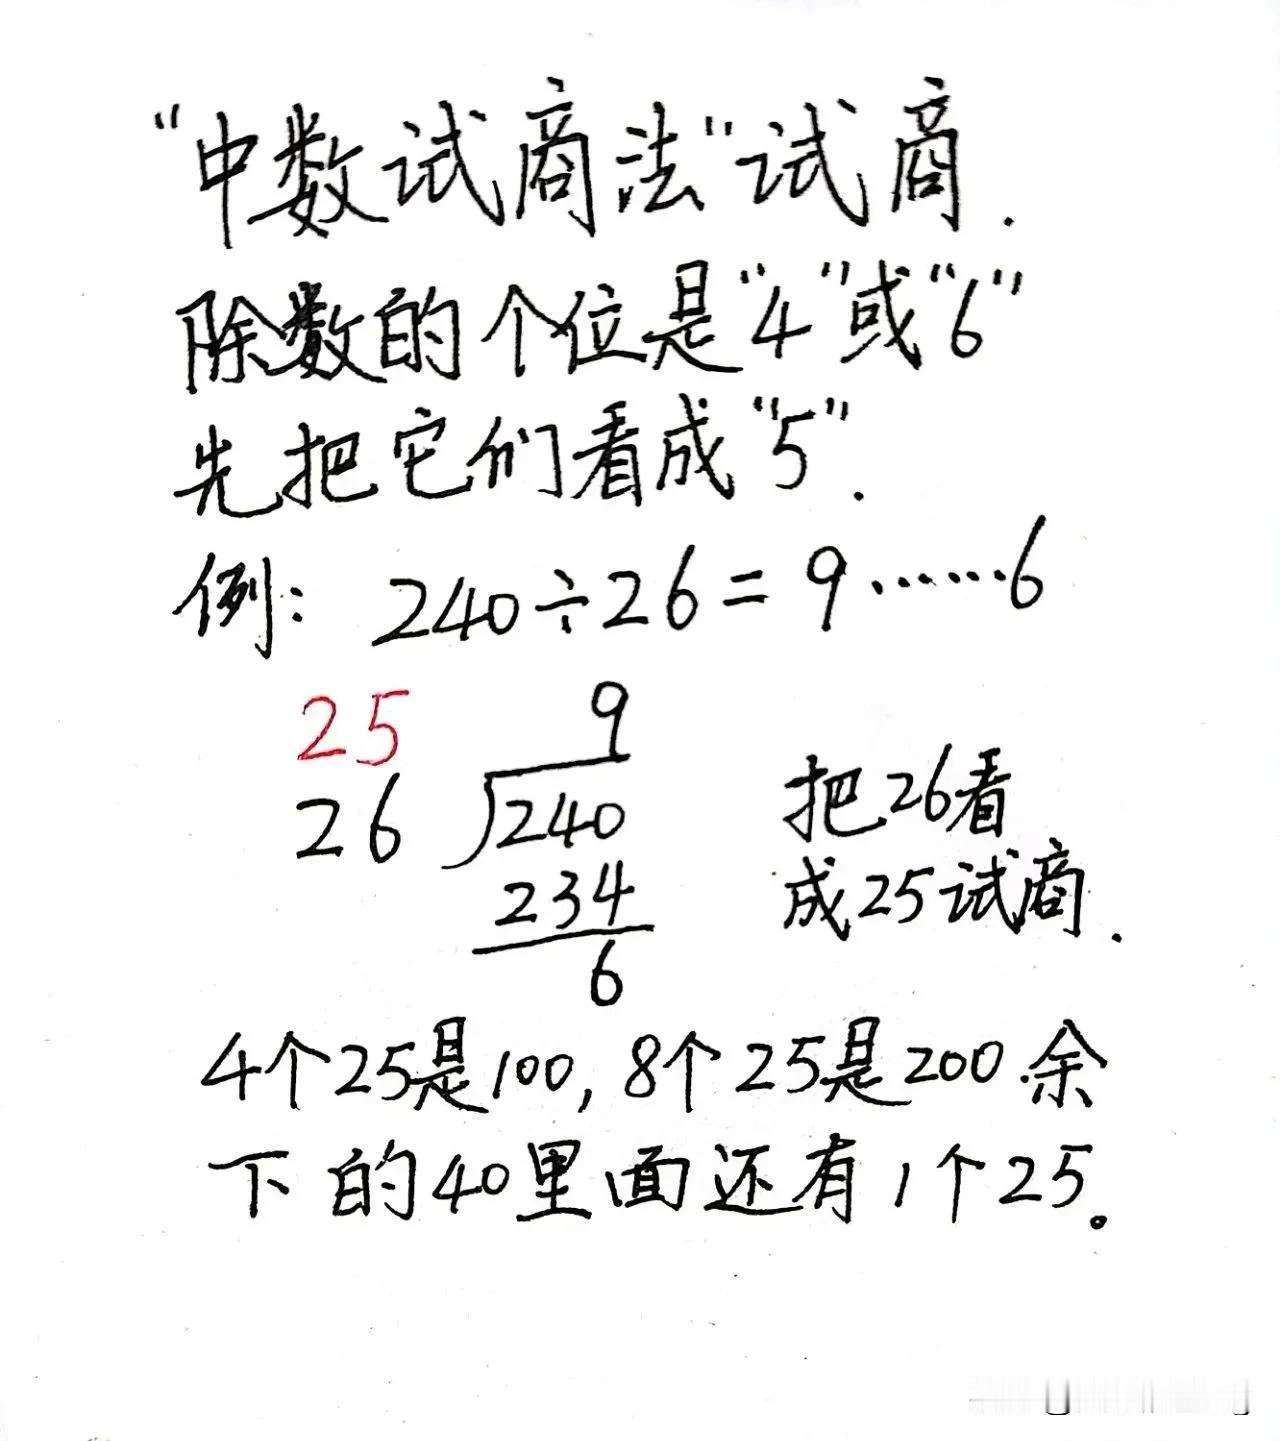 “中数试商法”试商.
除数的个位是“4”或“6”
先把它们看成“5”.
例: 240÷26=9……6
25 9
26 240 把26看
234 成25试商.
6
4个25是100,8个25是200余
下的40里面还有1个25。